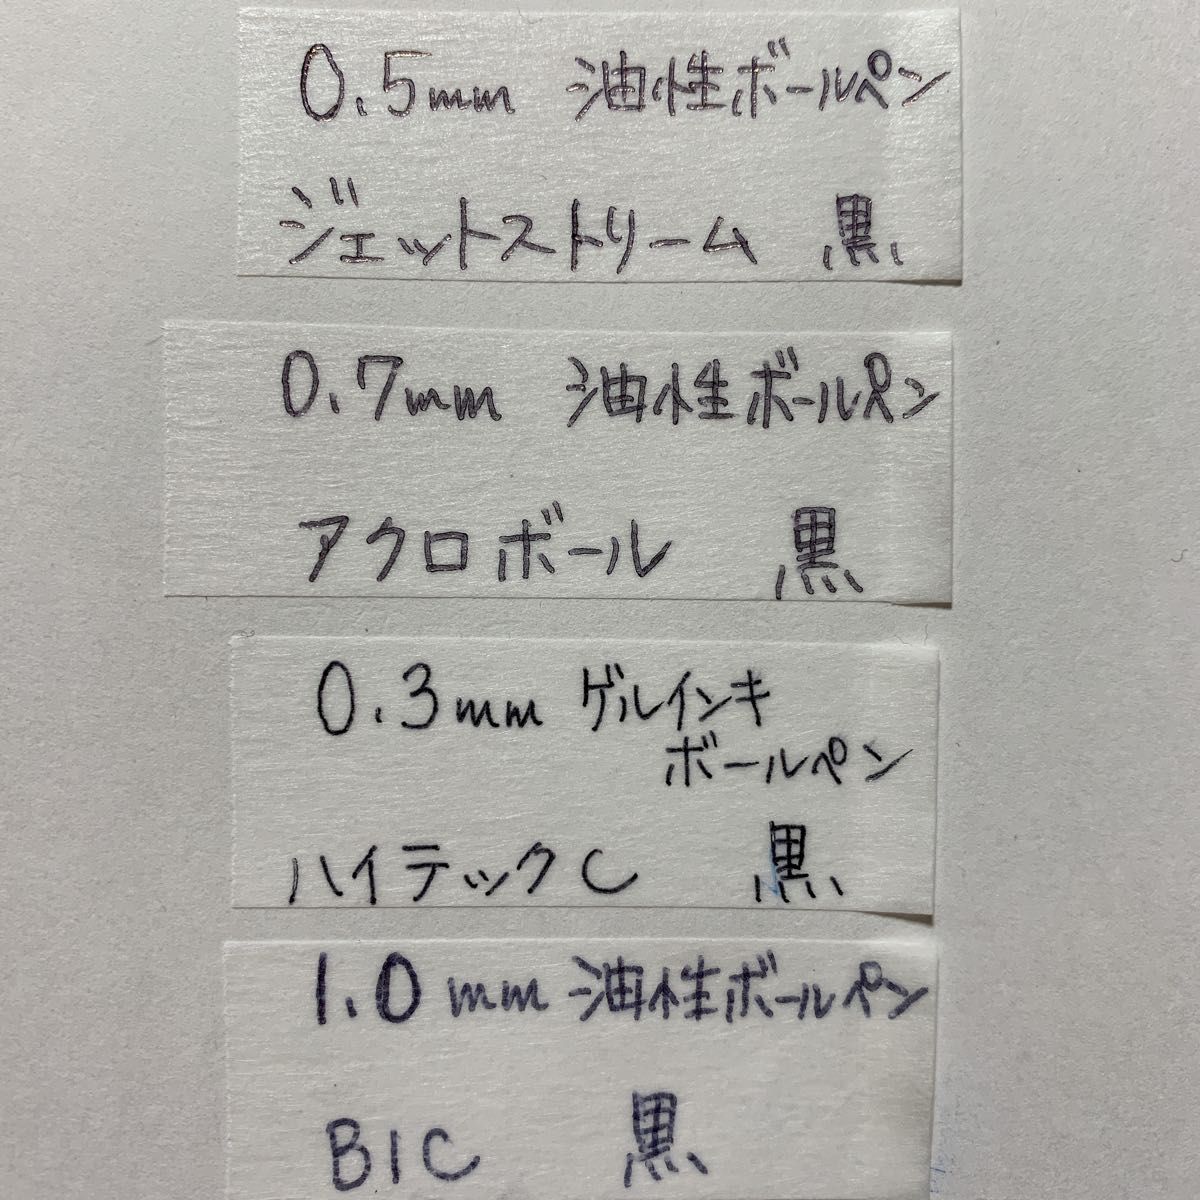 0.5mm 油性ボールペン
ジェットストリーム 黒
0.7mm 油性ボールペン
アクロボール 黒
0.3mm ゲルインキ
ボールペン
ハイテックC 黒
1.0mm 油性ボールペン
BIC 黒